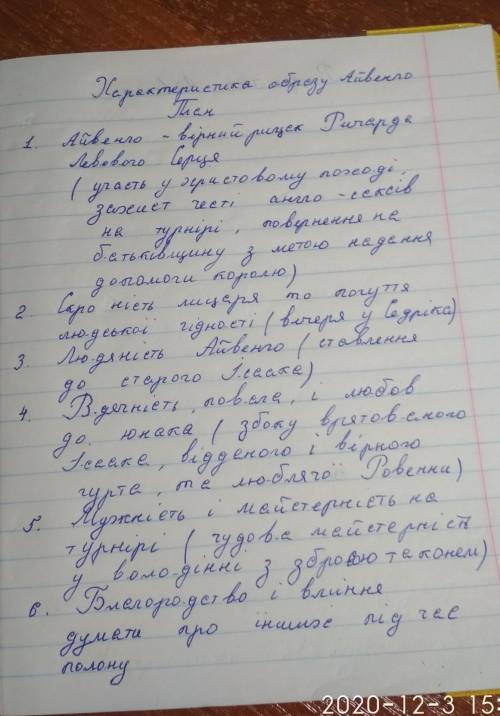 Характеристика образу Айвенго
План
1. Айвенго - вірний рицар Ричарда
Левового Серця
(участь у христовому поході,
захист честі англо-саксів
на турнірі, повернення на
батьківщину з метою надання
допомоги королю)
2. Скромність лицаря та почуття
людської гідності (вечеря у Седріка)
3. Людяність Айвенго (ставлення
до старого Ісаака)
4. Вдячність, повага, і любов
до юнака (збоку врятованого
Ісаака, відданого і вірного
гурта, та люблячої Ровенни)
5. Мужність і майстерність на
турнірі (чудова майстерність
у володінні з зброєю та конем)
6. Благородство і вміння
думати про інших під час
полону
2020-12-3 15: